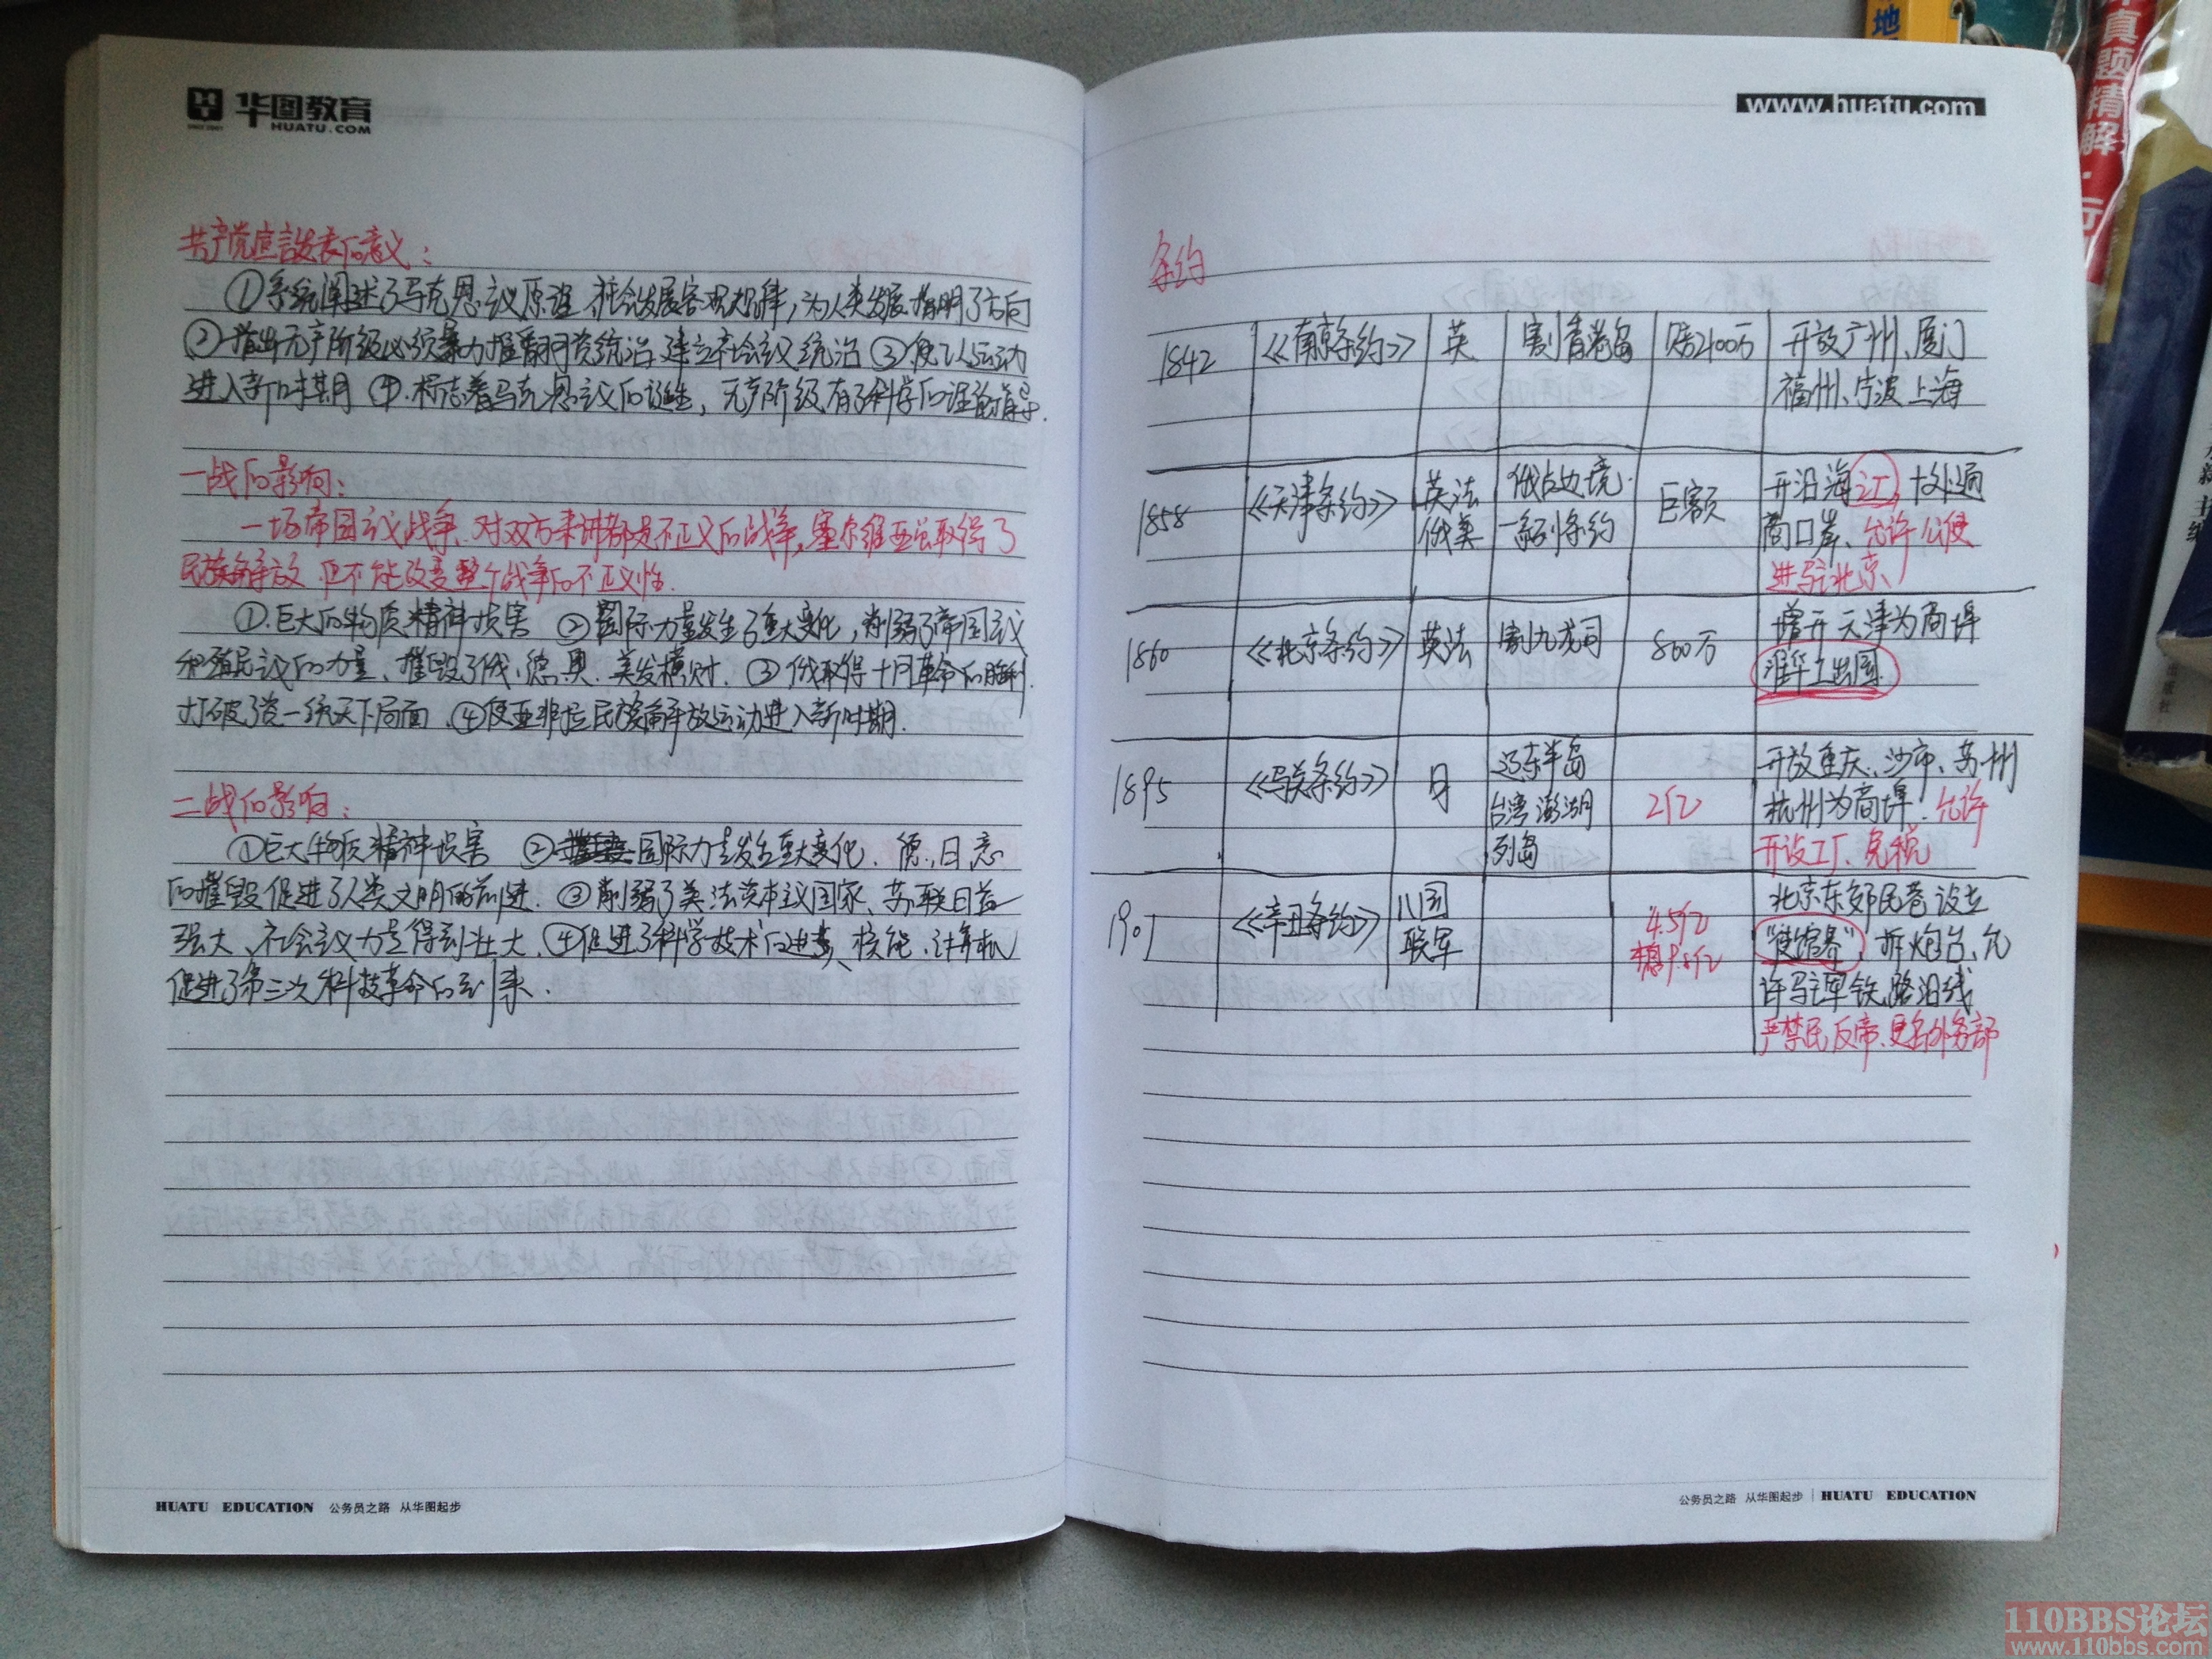 华图教育
HUATU.COM
共产党宣言发表的意义：
①系统阐述了马克思主义原理 社会发展客观规律，为人类发展指明了方向
②指出无产阶级必须暴力推翻资统治 建立社会主义统治 ③使工人运动
进入新时期 ④.标志着马克思主义的诞生，无产阶级有了科学的理论指导.
一战的影响：
一场帝国主义战争、对双方来讲都是不正义的战争，塞尔维亚虽取得了
民族解放 但不能改变整个战争的不正义性.
①.巨大的物质精神损害 ②国际力量发生了重大变化，削弱了帝国主义
和殖民主义的力量、摧毁了俄、德、奥、美发横财. ③俄取得十月革命的胜利.
打破了资一统天下局面. ④使亚非拉民族解放运动进入新时期.
二战的影响：
①巨大物质精神损害 ②国际力量发生重大变化. 德、日、意
的摧毁促进了人类文明的前进. ③削弱了美法资本主义国家、苏联日益
强大、社会主义力量得到壮大. ④促进了科学技术的进步、核能、计算机
促进了第三次科技革命的到来.
HUATU EDUCATION 公务员之路 从华图起步
www.huatu.com
条约
1842 《南京条约》 英 割香港岛 赔2100万 开放广州、厦门
福州、宁波 上海
1858 《天津条约》 英法 俄占边境 巨额 开沿海 江 十处通
俄美 一系列条约 商口岸、允许公使
进驻北京
1860 《北京条约》 英法 割九龙司 800万 增开天津为商埠
准华工出国
1895 《马关条约》 日 辽东半岛 2亿 开放重庆、沙市、苏州
台湾 澎湖 杭州为商埠. 允许
列岛 开设工厂、免税
1901 《辛丑条约》 八国 4.5亿 北京东郊民巷设立
联军 本息9.8亿 "使馆界"，拆炮台、允
许驻军铁路沿线
严禁民反帝、更名外务部
公务员之路 从华图起步 HUATU EDUCATION
地
真题精解
110BBS论坛
www.110bbs.com